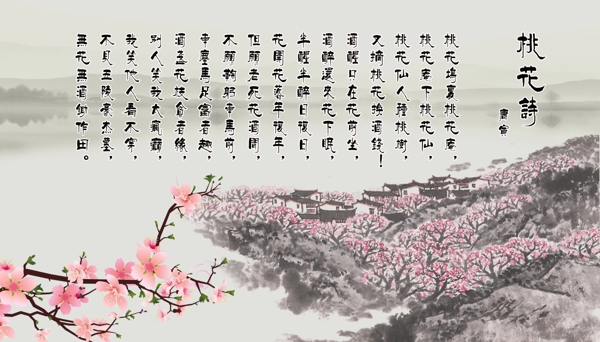 桃花詩
唐寅
桃花塢裏桃花庵,
桃花庵下桃花仙,
桃花仙人種桃樹,
又摘桃花換酒錢!
酒醒只在花前坐,
酒醉還來花下眠,
半醒半醉日復日,
花開花落年復年,
但願老死花酒間,
不願鞠躬車馬前,
車塵馬足富者趣,
酒盞花枝貧者緣,
別人笑我太瘋癲,
我笑他人看不穿,
不見五陵豪傑墓,
無花無酒鋤作田。